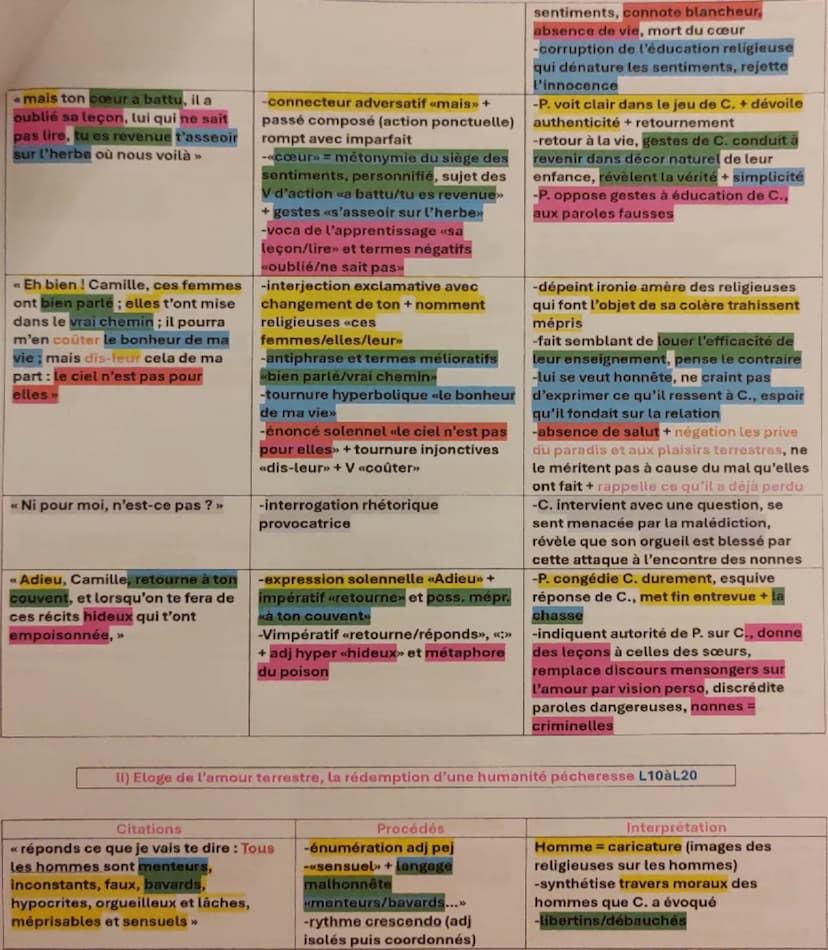 sentiments, connote blancheur,
absence de vie, mort du cœur
-corruption de l'éducation religieuse
qui dénature les sentiments, rejette
l'innocence
« mais ton cœur a battu, il a
oublié sa leçon, lui qui ne sait
pas lire, tu es revenue t'asseoir
sur l'herbe où nous voilà »
-connecteur adversatif «mais» +
passé composé (action ponctuelle)
rompt avec imparfait
-«cœur» = métonymie du siège des
sentiments, personnifié, sujet des
V d'action «a battu/tu es revenue»
+ gestes «s'asseoir sur l'herbe»
-voca de l'apprentissage «sa
leçon/lire» et termes négatifs
«oublié/ne sait pas»
-P. voit clair dans le jeu de C. + dévoile
authenticité + retournement
-retour à la vie, gestes de C. conduit à
revenir dans décor naturel de leur
enfance, révèlent la vérité + simplicité
-P. oppose gestes à éducation de C.,
aux paroles fausses
« Eh bien ! Camille, ces femmes
ont bien parlé ; elles t'ont mise
dans le vrai chemin ; il pourra
m'en coûter le bonheur de ma
vie ; mais dis-leur cela de ma
part : le ciel n'est pas pour
elles »
-interjection exclamative avec
changement de ton + nomment
religieuses «ces
femmes/elles/leur»
-antiphrase et termes mélioratifs
«bien parlé/vrai chemin»
-tournure hyperbolique «le bonheur
de ma vie»
-énoncé solennel «le ciel n'est pas
pour elles» + tournure injonctives
«dis-leur» + V «coûter»
-dépeint ironie amère des religieuses
qui font l'objet de sa colère trahissent
mépris
-fait semblant de louer l'efficacité de
leur enseignement, pense le contraire
-lui se veut honnête, ne craint pas
d'exprimer ce qu'il ressent à C., espoir
qu'il fondait sur la relation
-absence de salut + négation les prive
du paradis et aux plaisirs terrestres, ne
le méritent pas à cause du mal qu'elles
ont fait + rappelle ce qu'il a déjà perdu
« Ni pour moi, n'est-ce pas ? »
-interrogation rhétorique
provocatrice
-C. intervient avec une question, se
sent menacée par la malédiction,
révèle que son orgueil est blessé par
cette attaque à l'encontre des nonnes
« Adieu, Camille, retourne à ton
couvent, et lorsqu'on te fera de
ces récits hideux qui t'ont
empoisonnée, »
-expression solennelle «Adieu» +
impératif «retourne» et poss. mépr.
«à ton couvent»
-Vimpératif «retourne/réponds», «:»
+ adj hyper «hideux» et métaphore
du poison
-P. congédie C. durement, esquive
réponse de C., met fin entrevue + la
chasse
-indiquent autorité de P. sur C., donne
des leçons à celles des sœurs,
remplace discours mensongers sur
l'amour par vision perso, discrédite
paroles dangereuses, nonnes =
criminelles
II) Eloge de l'amour terrestre, la rédemption d'une humanité pécheresse L10àL20
Citations
Procédés
Interprétation
« réponds ce que je vais te dire : Tous
les hommes sont menteurs,
inconstants, faux, bavards,
hypocrites, orgueilleux et lâches,
méprisables et sensuels »
-énumération adj pej
-«sensuel» + langage
malhonnête
«menteurs/bavards...»
-rythme crescendo (adj
isolés puis coordonnés)
Homme = caricature (images des
religieuses sur les hommes)
-synthétise travers moraux des
hommes que C. a évoqué
-libertins/débauchés